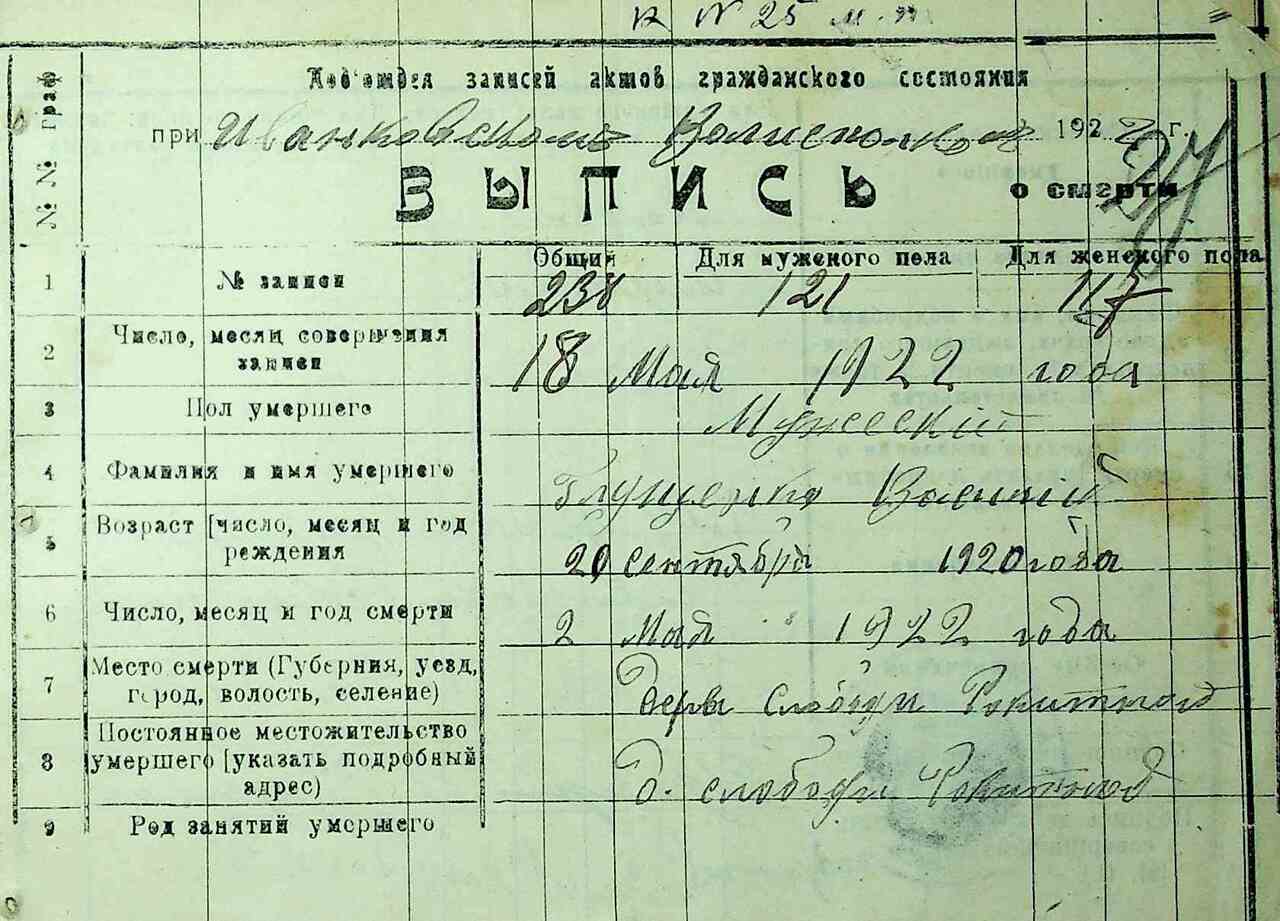 к № 25
Подотдел записей актов гражданского состояния
при Иванковскомъ Волисполкоме 1922 г.
27
ВЫПИСЬ о смерти
№ № граф
Общий Для мужского пола Для женского пола
1 № записи 238 121 117
2 Число, месяц совершения
записи 18 Мая 1922 года
3 Пол умершего Мужескій
4 Фамилия и имя умершего Глущенко Василій
5 Возраст [число, месяц и год
рождения 20 сентября 1920 года
6 Число, месяц и год смерти 2 Мая 1922 года
7 Место смерти (Губерния, уезд,
город, волость, селение) дерев Слободи Рокитной
8 Постоянное местожительство
умершего [указать подробный
адрес) д. слободи Рокитной
9 Род занятий умершего